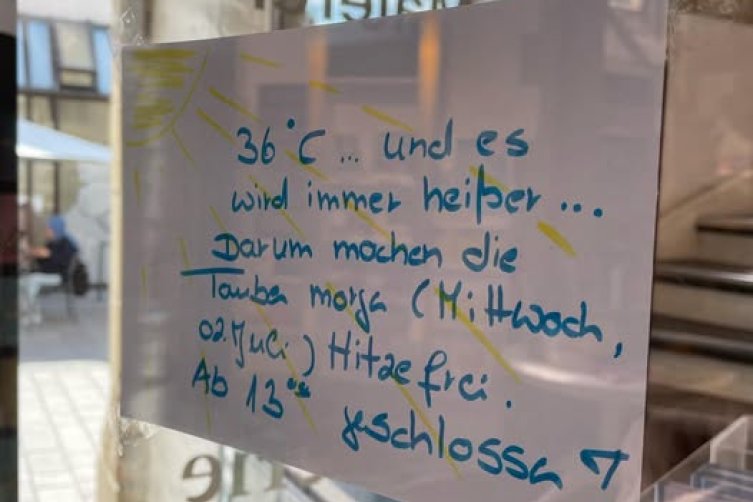 36°C ... und es
wird immer heißer ...
Darum machen die
Tauben morgen (Mittwoch,
02. Juli) Hitzefrei.
Ab 13⁰⁰ geschlossen